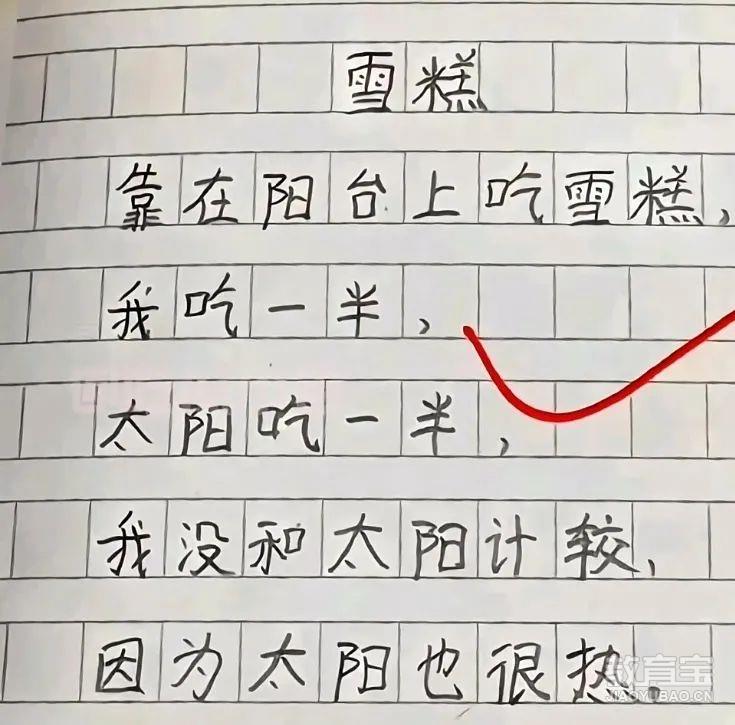 雪糕
靠在阳台上吃雪糕，
我吃一半，
太阳吃一半，
我没和太阳计较，
因为太阳也很热
教育宝
XIAOYUBAO.CN